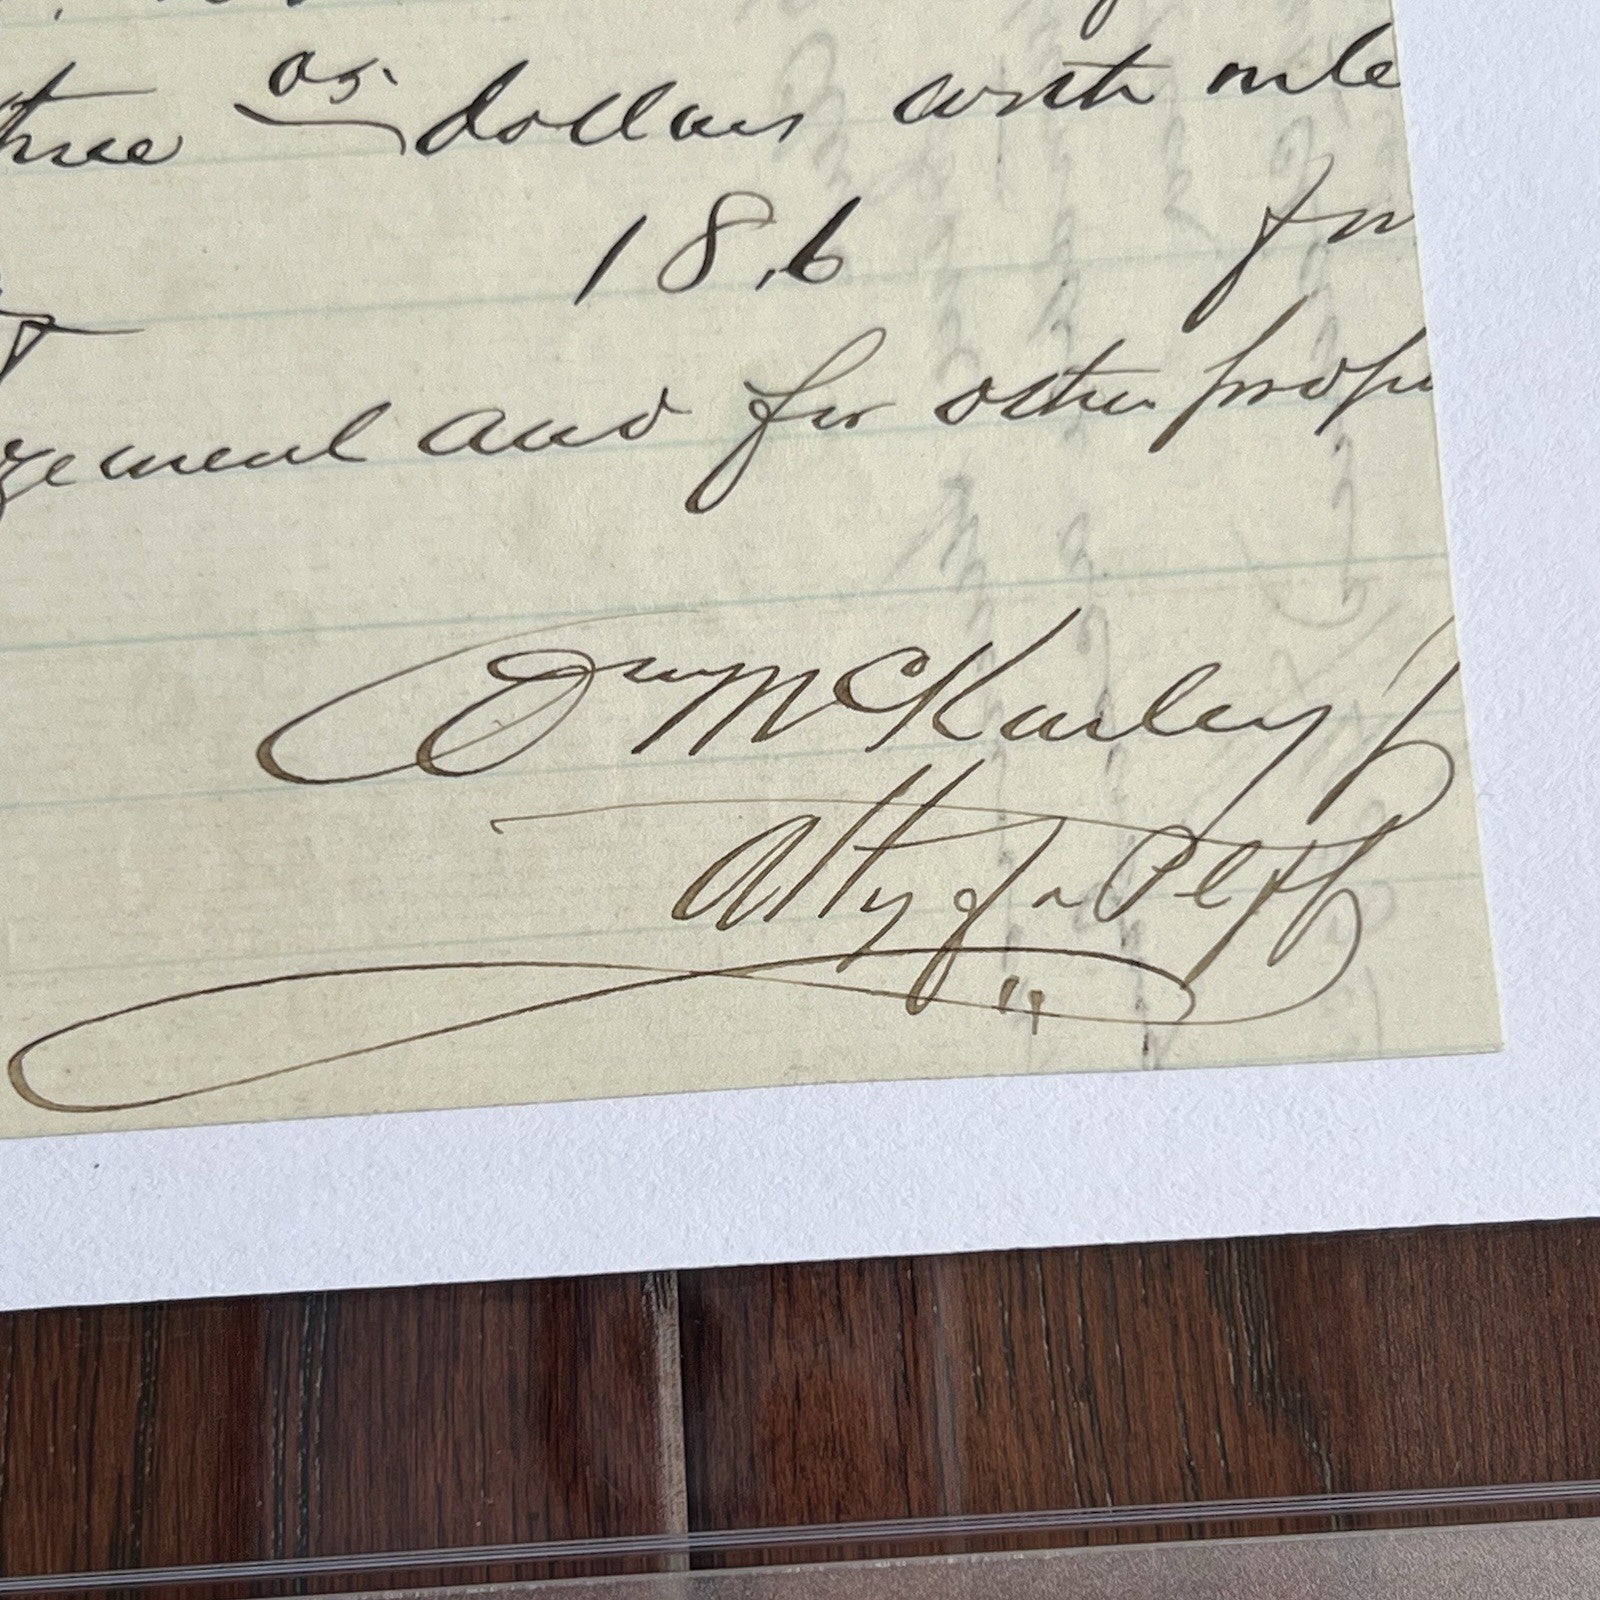 three 05 dollars with inte
18.6 for
gement and for other prope
Wm McKinley
Atty for Plff
"